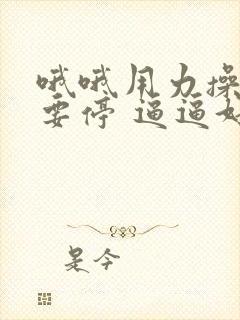 哦哦用力操
要停 逼逼好
是今